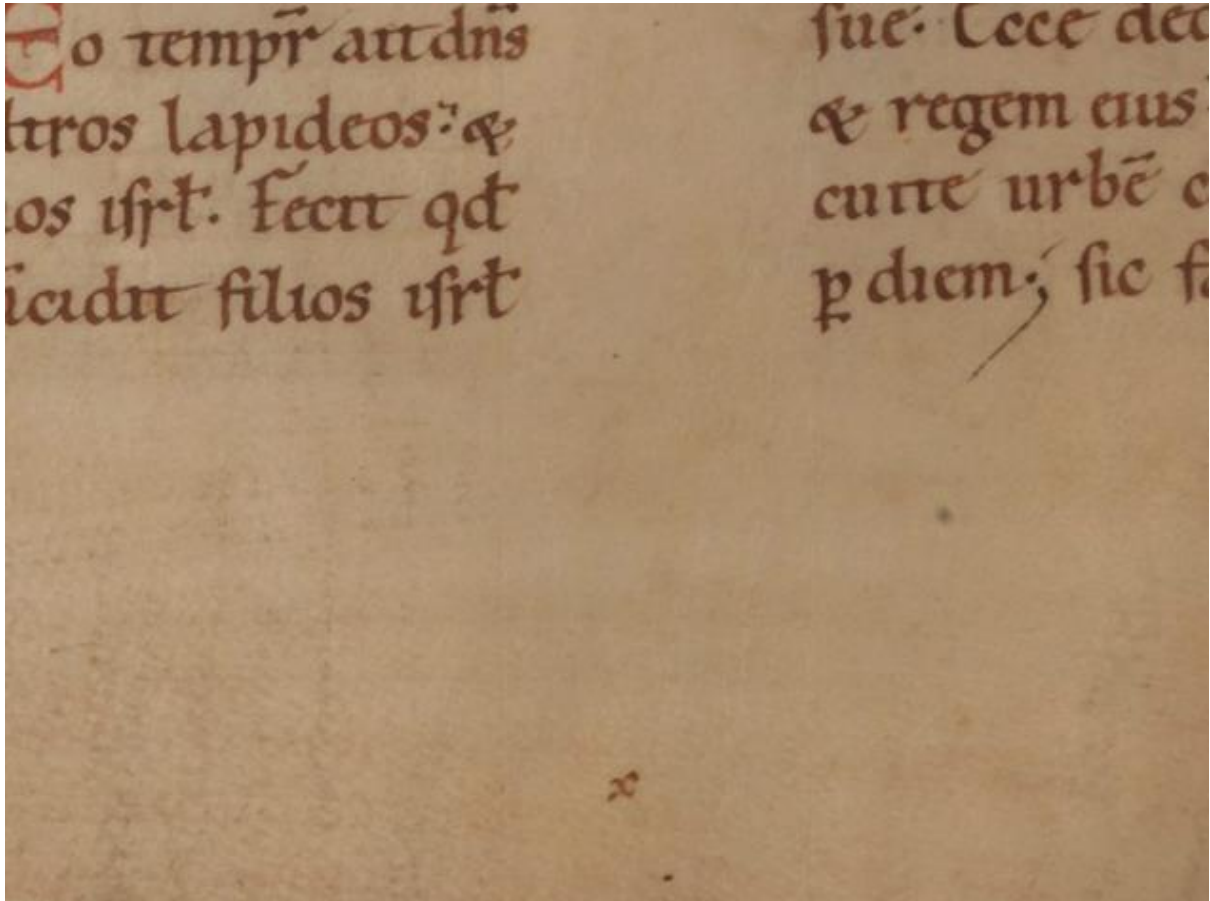 Eo tempr̄ aıt dn̄s
ltros lapideos· &
os isrł. Fecit qđ
icidit filios isrł
sue· Ecce ded
& regem eius
cuite urbē c
ꝑ diem·; sic fa
x